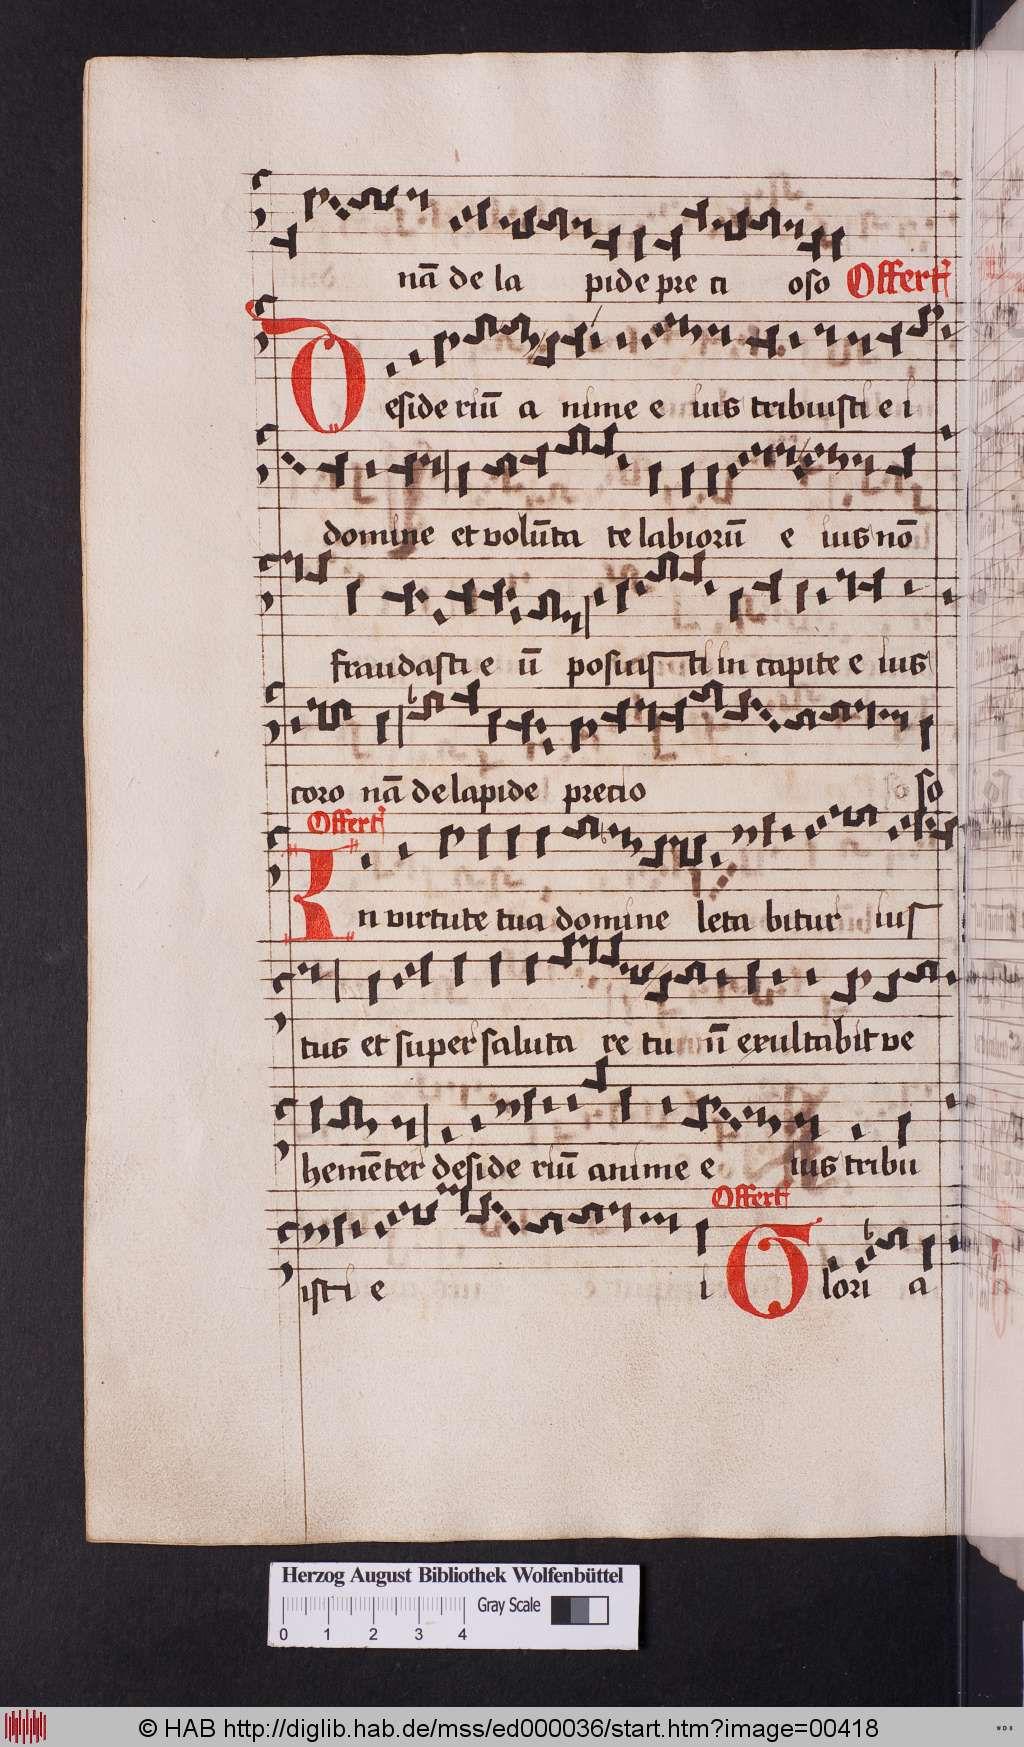 nā de la pide pre ti oso Offert
Deside riū a nime e ius tribuisti e i
domine et volūta te labiorū e ius nō
fraudasti e ū posuisti in capite e ius
coro nā de lapide precio so
Offert
In virtute tua domine leta bitur ius
tus et super saluta re tuū exultabit ve
hemēter deside riū anime e ius tribu
Offert
isti e i Glori a
Herzog August Bibliothek Wolfenbüttel
Gray Scale
0 1 2 3 4
© HAB http://diglib.hab.de/mss/ed000036/start.htm?image=00418